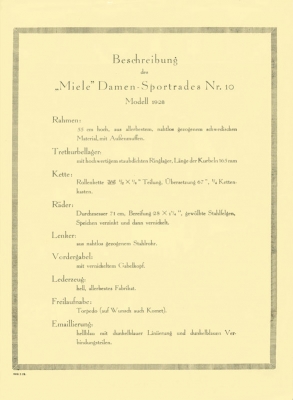 Beschreibung
des
„Miele" Damen-Sportrades Nr. 10
Modell 1928
Rahmen:
55 cm hoch, aus allerbestem, nahtlos gezogenem schwedischen
Material, mit Außenmuffen.
Tretkurbellager:
mit hochwertigem staubdichten Ringlager, Länge der Kurbeln 165 mm
Kette:
Rollenkette 5/8 × 1/8" Teilung, Übersetzung 67", 3/4 Ketten-
kasten.
Räder:
Durchmesser 71 cm, Bereifung 28 × 1 1/2", gewölbte Stahlfelgen,
Speichen verzinkt und dann vernickelt.
Lenker:
aus nahtlos gezogenem Stahlrohr.
Vordergabel:
mit vernickeltem Gabelkopf.
Lederzeug:
hell, allerbestes Fabrikat.
Freilaufnabe:
Torpedo (auf Wunsch auch Komet).
Emaillierung:
hellblau mit dunkelblauer Liniierung und dunkelblauen Ver-
bindungsteilen.